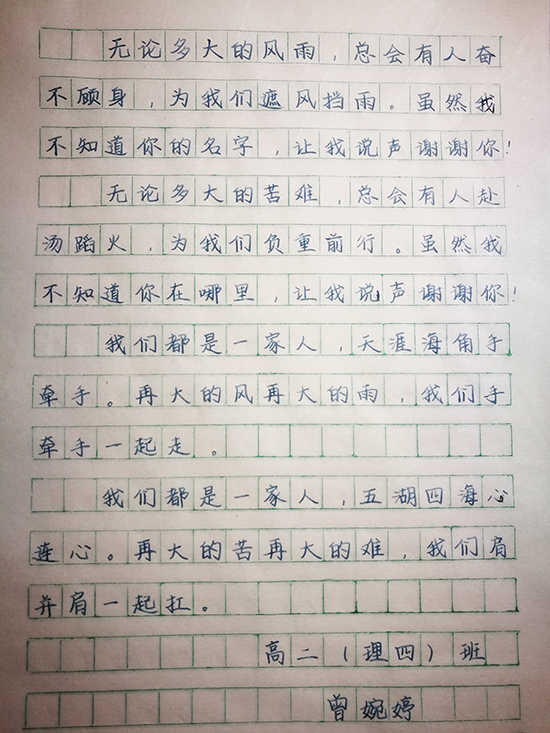 无论多大的风雨，总会有人奋
不顾身，为我们遮风挡雨。虽然我
不知道你的名字，让我说声谢谢你！
无论多大的苦难，总会有人赴
汤蹈火，为我们负重前行。虽然我
不知道你在哪里，让我说声谢谢你！
我们都是一家人，天涯海角手
牵手。再大的风再大的雨，我们手
牵手一起走。
我们都是一家人，五湖四海心
连心。再大的苦再大的难，我们肩
并肩一起扛。
高二（理四）班
曾婉婷